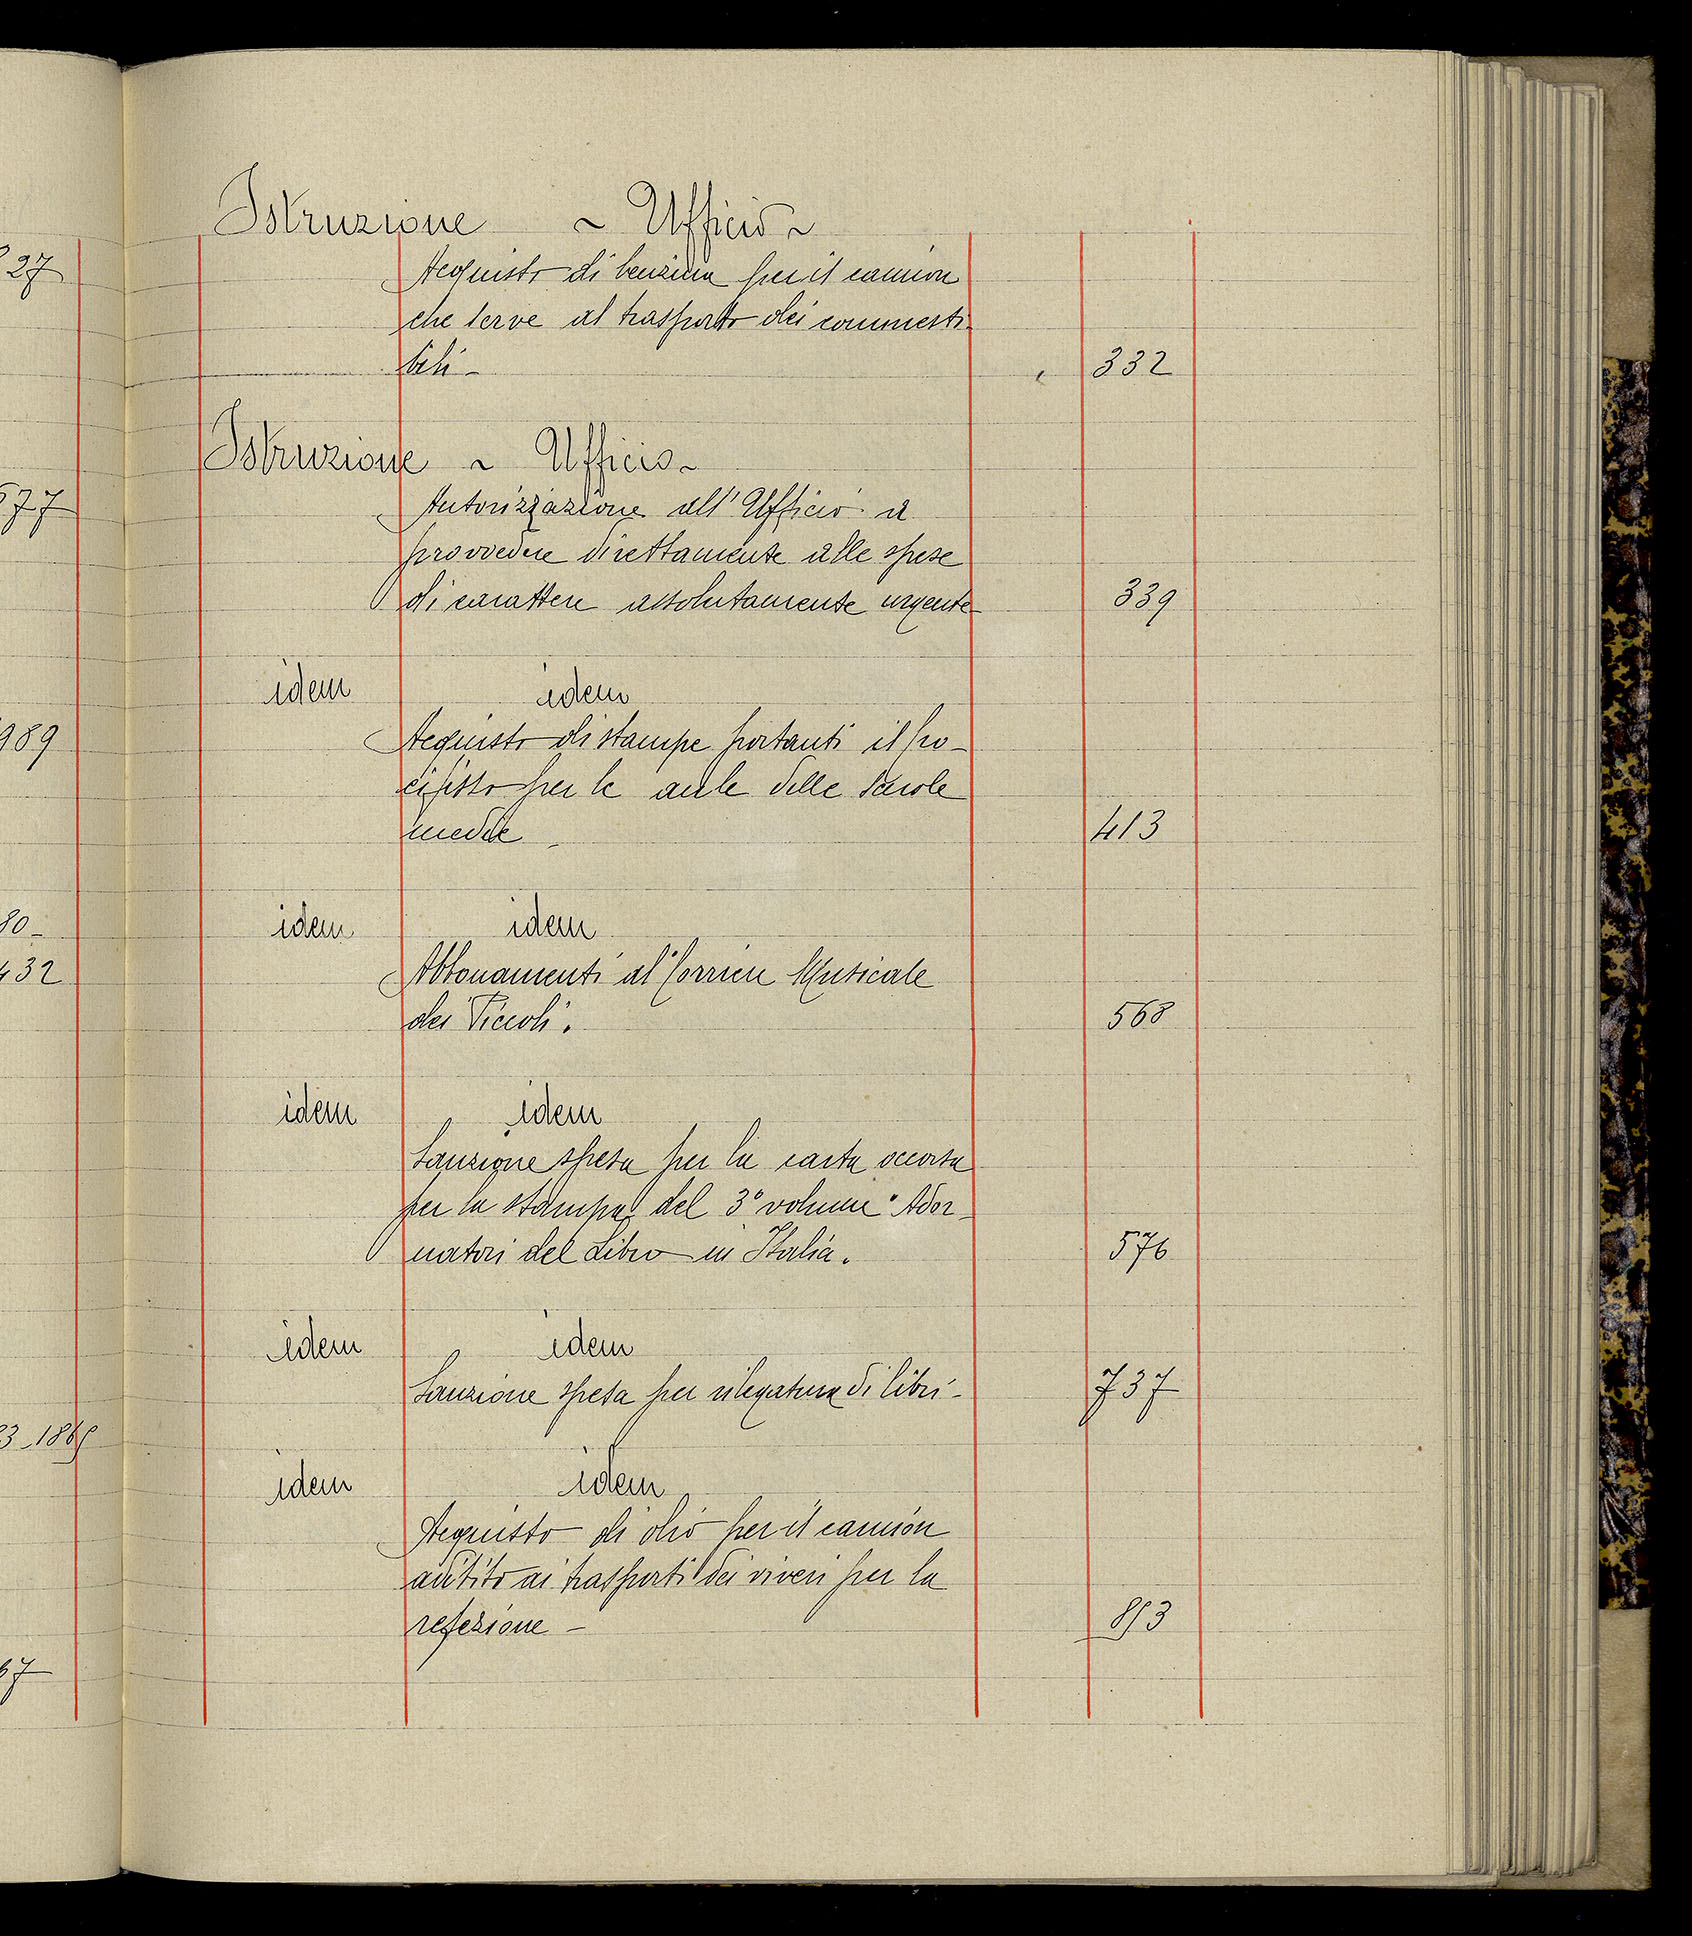 Istruzione ~ Ufficio ~
27
Acquisto di benzina per il camion
che serve al trasporto dei commesti-
bili - 332
Istruzione ~ Ufficio ~
577
Autorizzazione all'Ufficio a
provvedere direttamente alle spese
di carattere assolutamente urgente - 339
idem idem
989
Acquisto di stampe portanti il Cro-
cifisso per le aule delle Scuole
medie - 413
80 -
idem idem
432
Abbonamenti al "Corriere Musicale
dei Piccoli". 568
idem idem
Sanzione spesa per la carta occorsa
per la stampa del 3° volume "Ador-
natori del Libro in Italia. 576
idem idem
Sanzione spesa per rilegatura di libri - 737
3-1865
idem idem
Acquisto di olio per il camion
adibito ai trasporti dei viveri per la
refezione - 853
67